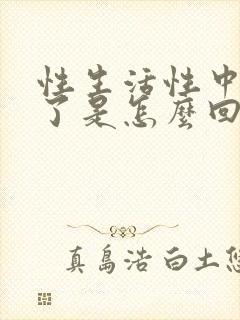 性生活性中
了是怎麼回
真島浩 白土悠